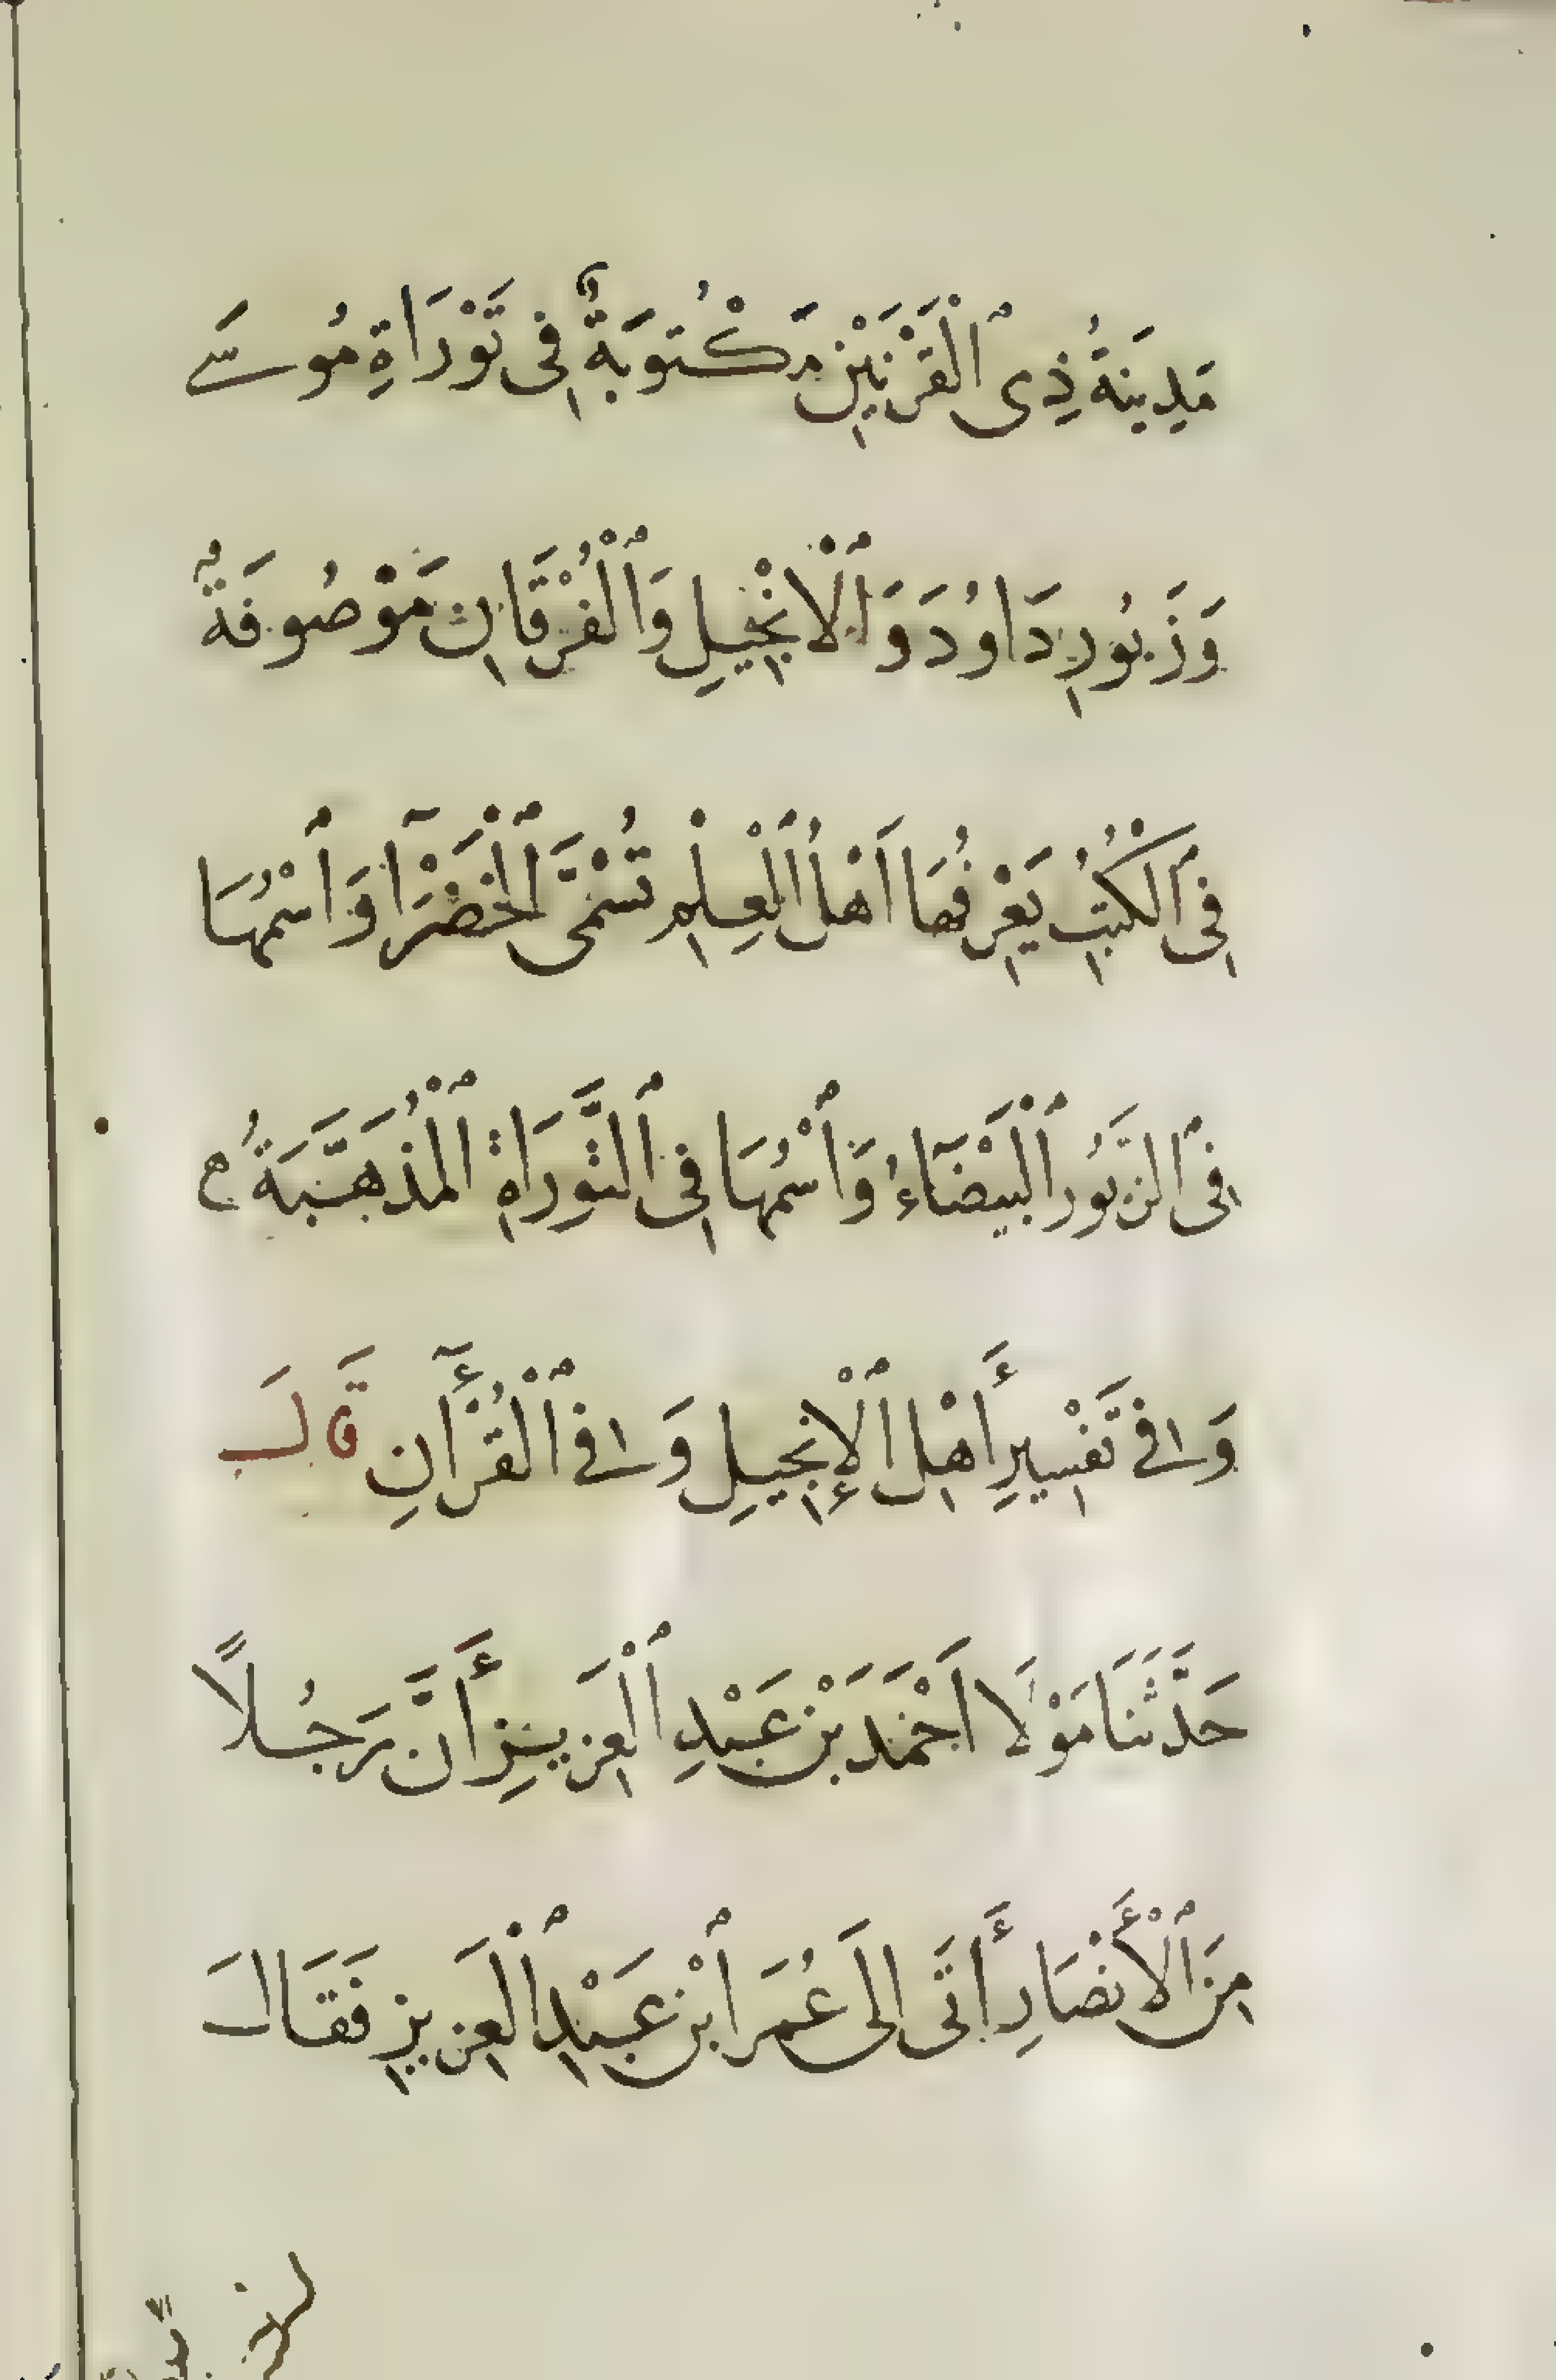 مَدِينَةُ ذِى ٱلْقَرْنَيْنِ مَّكْتُوبَةٌ فِى تَوْرَاةِ مُوسَى
وَزَبُورِ دَاوُدَ وَٱلْاِنْجِيلِ وَٱلْفُرْقَانِ مَوْصُوفَةٌ
فِى ٱلْكُتُبِ يَعْرِفُهَا اَهْلُ ٱلْعِلْمِ تُسَمَّى ٱلْخَضْرَآ وَٱسْمُهَا
فِى ٱلزَّبُورِ ٱلْبَيْضَآءُ وَٱسْمُهَا فِى ٱلتَّوْرَاةِ ٱلْمُذَهَّبَةُ ع
وَ افِى تَفْسِيرِ أَهْلِ ٱلْإِنْجِيلِ وَ افِى ٱلْقُرْأٓنِ قَالَ
حَدَّثَنَا مَوْلَا اَحْمَدَ بْنِ عَبْدِ ٱلْعَزِيزِ أَنَّ رَجُلًا
مِنَ ٱلْأَنْصَارِ أَتَى اِلَى عُمَرَ ٱبْنِ عَبْدِ ٱلْعَزِيزِ فَقَالَ